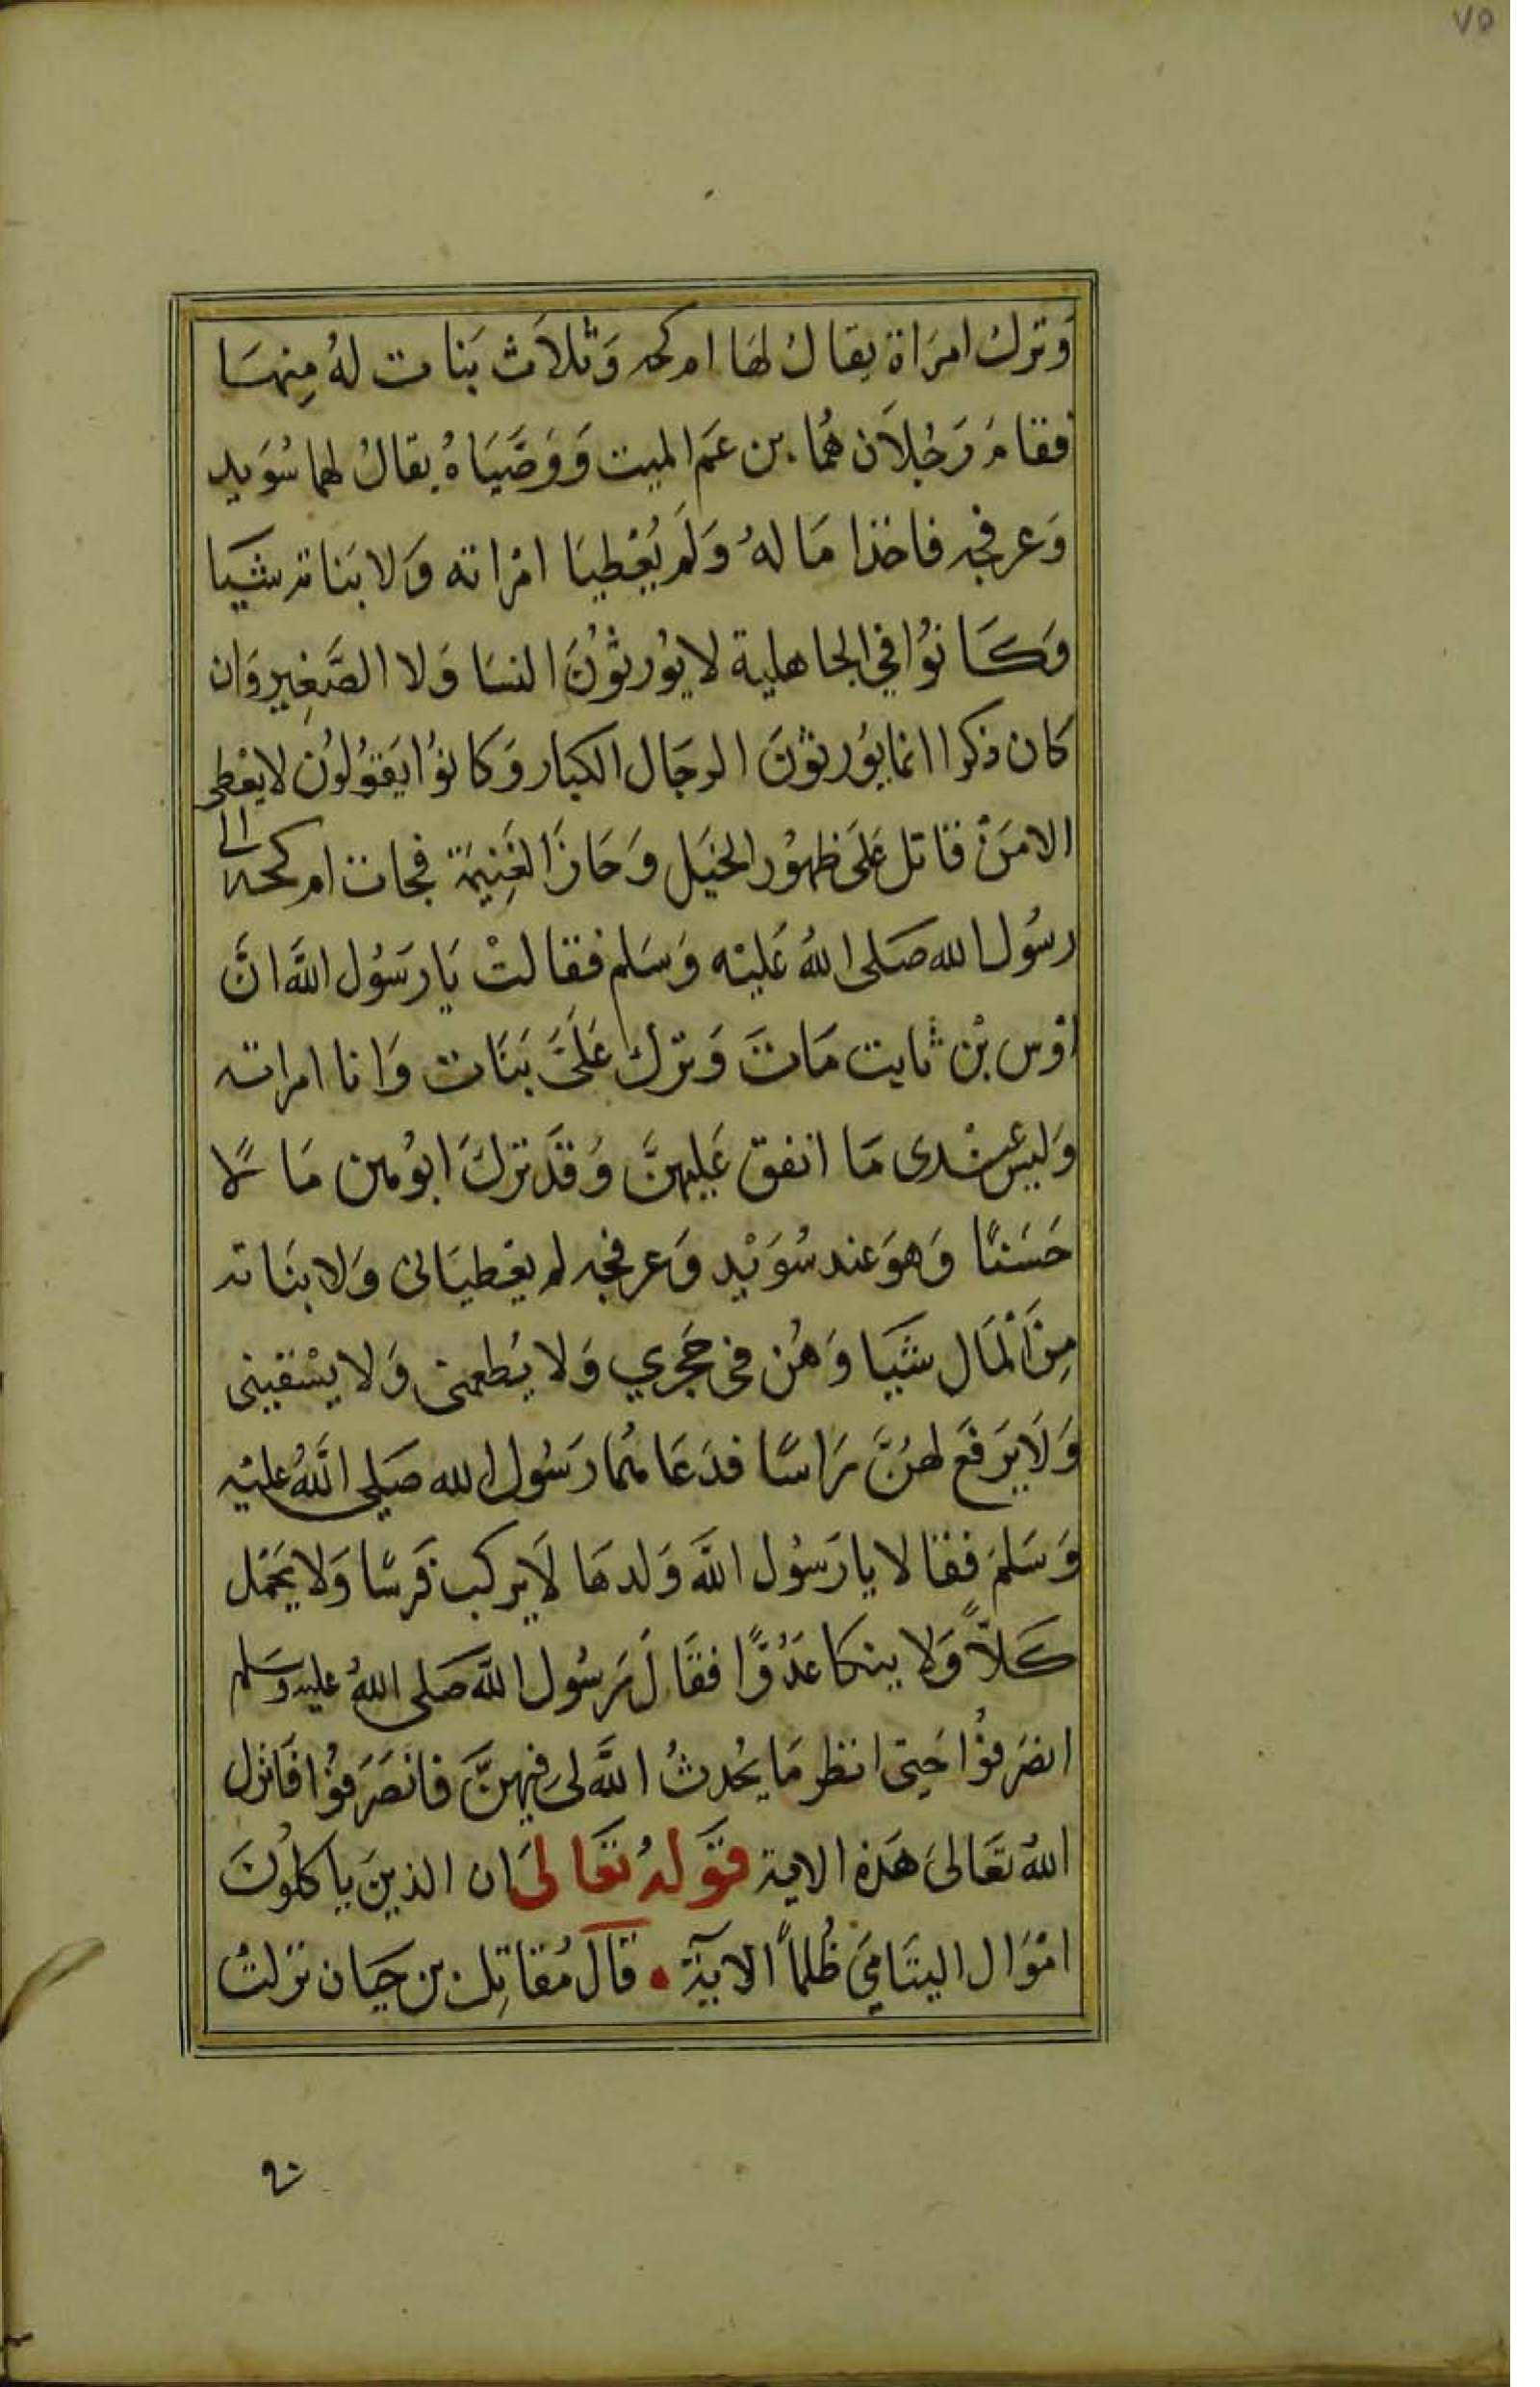 ٧٥
وَترك امرَاة يقال لهَا ام كحه وَثلاَث بَنات لهُ مِنهَا
فقامَ رَجُلاَن هُما بن عَم الميت وَوَصَّيَاهُ يقالُ لهما سُوَيد
وَعرفجه فاخذا مَا لهُ وَلَم يُعْطيَا امْراته وَلا بَناته شيَا
وَكَانوُا في الجاهلية لا يوُرثوُنَ النسَا وَلا الصَّغِير وَان
كان ذكرا انما يوُرثوُنَ الرجَال الكبار وَكانوُا يَقوُلوُن لا يعْطى
الا مَنْ قاتل عَلىَ ظهوُر الخيَل وَحَازَ الغَنِيمَة فجات ام كحه الى
رسُول الله صَلى اللهُ عَليْه وَسَلم فقالتْ يَا رَسُول اللَّه انَّ
اوْس بْن ثابت مَاتَ وَترك عَلَىَّ بَنَات وَانا امراته
وَليس عنْدى مَا انفق عَليهنَّ وَقَد تركَ ابوُهن مَالًا
حَسَنًا وَهوَ عند سُوَيْد وَعرفجه لم يعْطيَانى وَلا بنَاته
مِنَ الْمَال شيَا وَهُن فى حَجري وَلا يُطعمنى وَلا يسْقيني
وَلَا يَرفَع لهُنَّ رَاسًا فدَعَاهُما رَسُول الله صَلى اللَّهُ عليْه
وَسَلمَ فقالا يا رَسُول اللَّه وَلدهَا لَا يركب فَرسًا وَلا يَحْمل
كَلاًّ وَلا ينكا عَدُوًّا فقَالَ رَسُول اللَّه صَلى اللهُ عليه وسلم
انصَرفوُا حَتى انظر مَا يحُدثُ اللَّه لىَ فيهنَّ فانصَرَفوُا فانزل
اللهُ تعَالىَ هَذه الاية قوَلهُ تعَالىَ ان الذينَ ياكلوُنَ
امْوَال اليتَاميَ ظُلماً الايَة • قالَ مُقاتِل بن حيَان نزلتْ